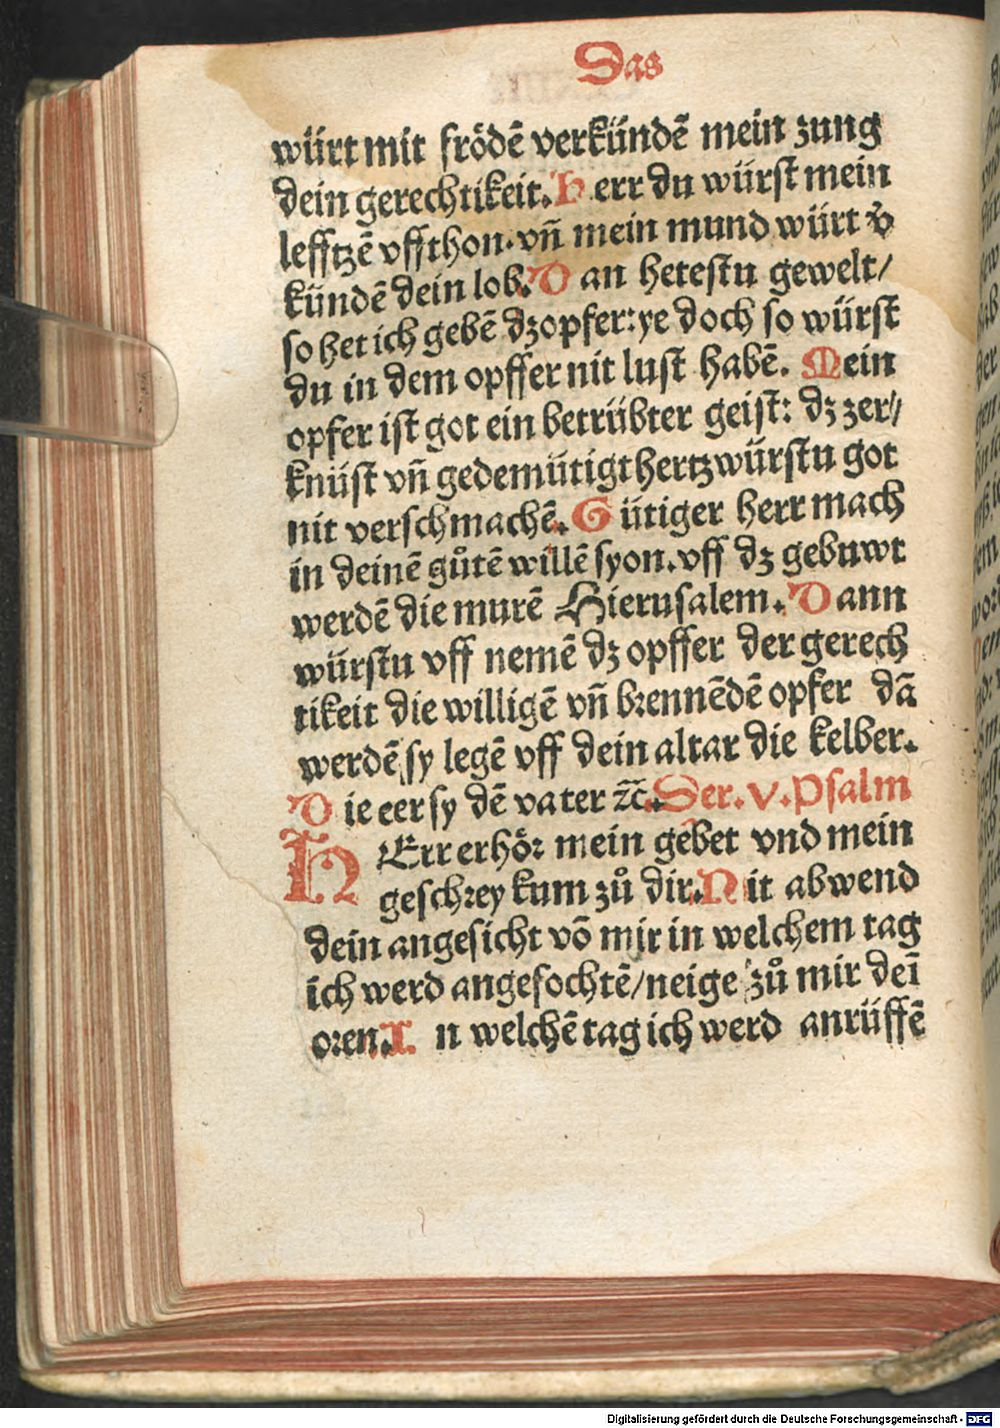 Das
würt mit frödē verkündē mein zung
dein gerechtikeit. Herr du würst mein
lefftzē vffthon. vñ mein mund würt v̄
kündē dein lob. Dan hetestu gewelt/
so het ich gebē dz opfer: ye doch so würst
du in dem opffer nit lust habē. Mein
opfer ist got ein betrübter geist: dz zer//
knüst vñ gedemütigt hertz würstu got
nit verschmachē. Gütiger herr mach
in deinē gůtē willē syon. vff dz gebuwt
werdē die murē Hierusalem. Dann
würstu vff nemē dz opffer der gerech
tikeit die willigē vñ brennēdē opfer dā
werdē sy legē vff dein altar die kelber.
Die eer sy dē vater ⁊c̄. Der. v. Psalm
HErr erhör mein gebet vnd mein
geschrey kum zů dir. Nit abwend
dein angesicht vō mir in welchem tag
ich werd angefochtē/ neige zů mir deī
oren. In welchē tag ich werd anrüffē
Digitalisierung gefördert durch die Deutsche Forschungsgemeinschaft - DFG